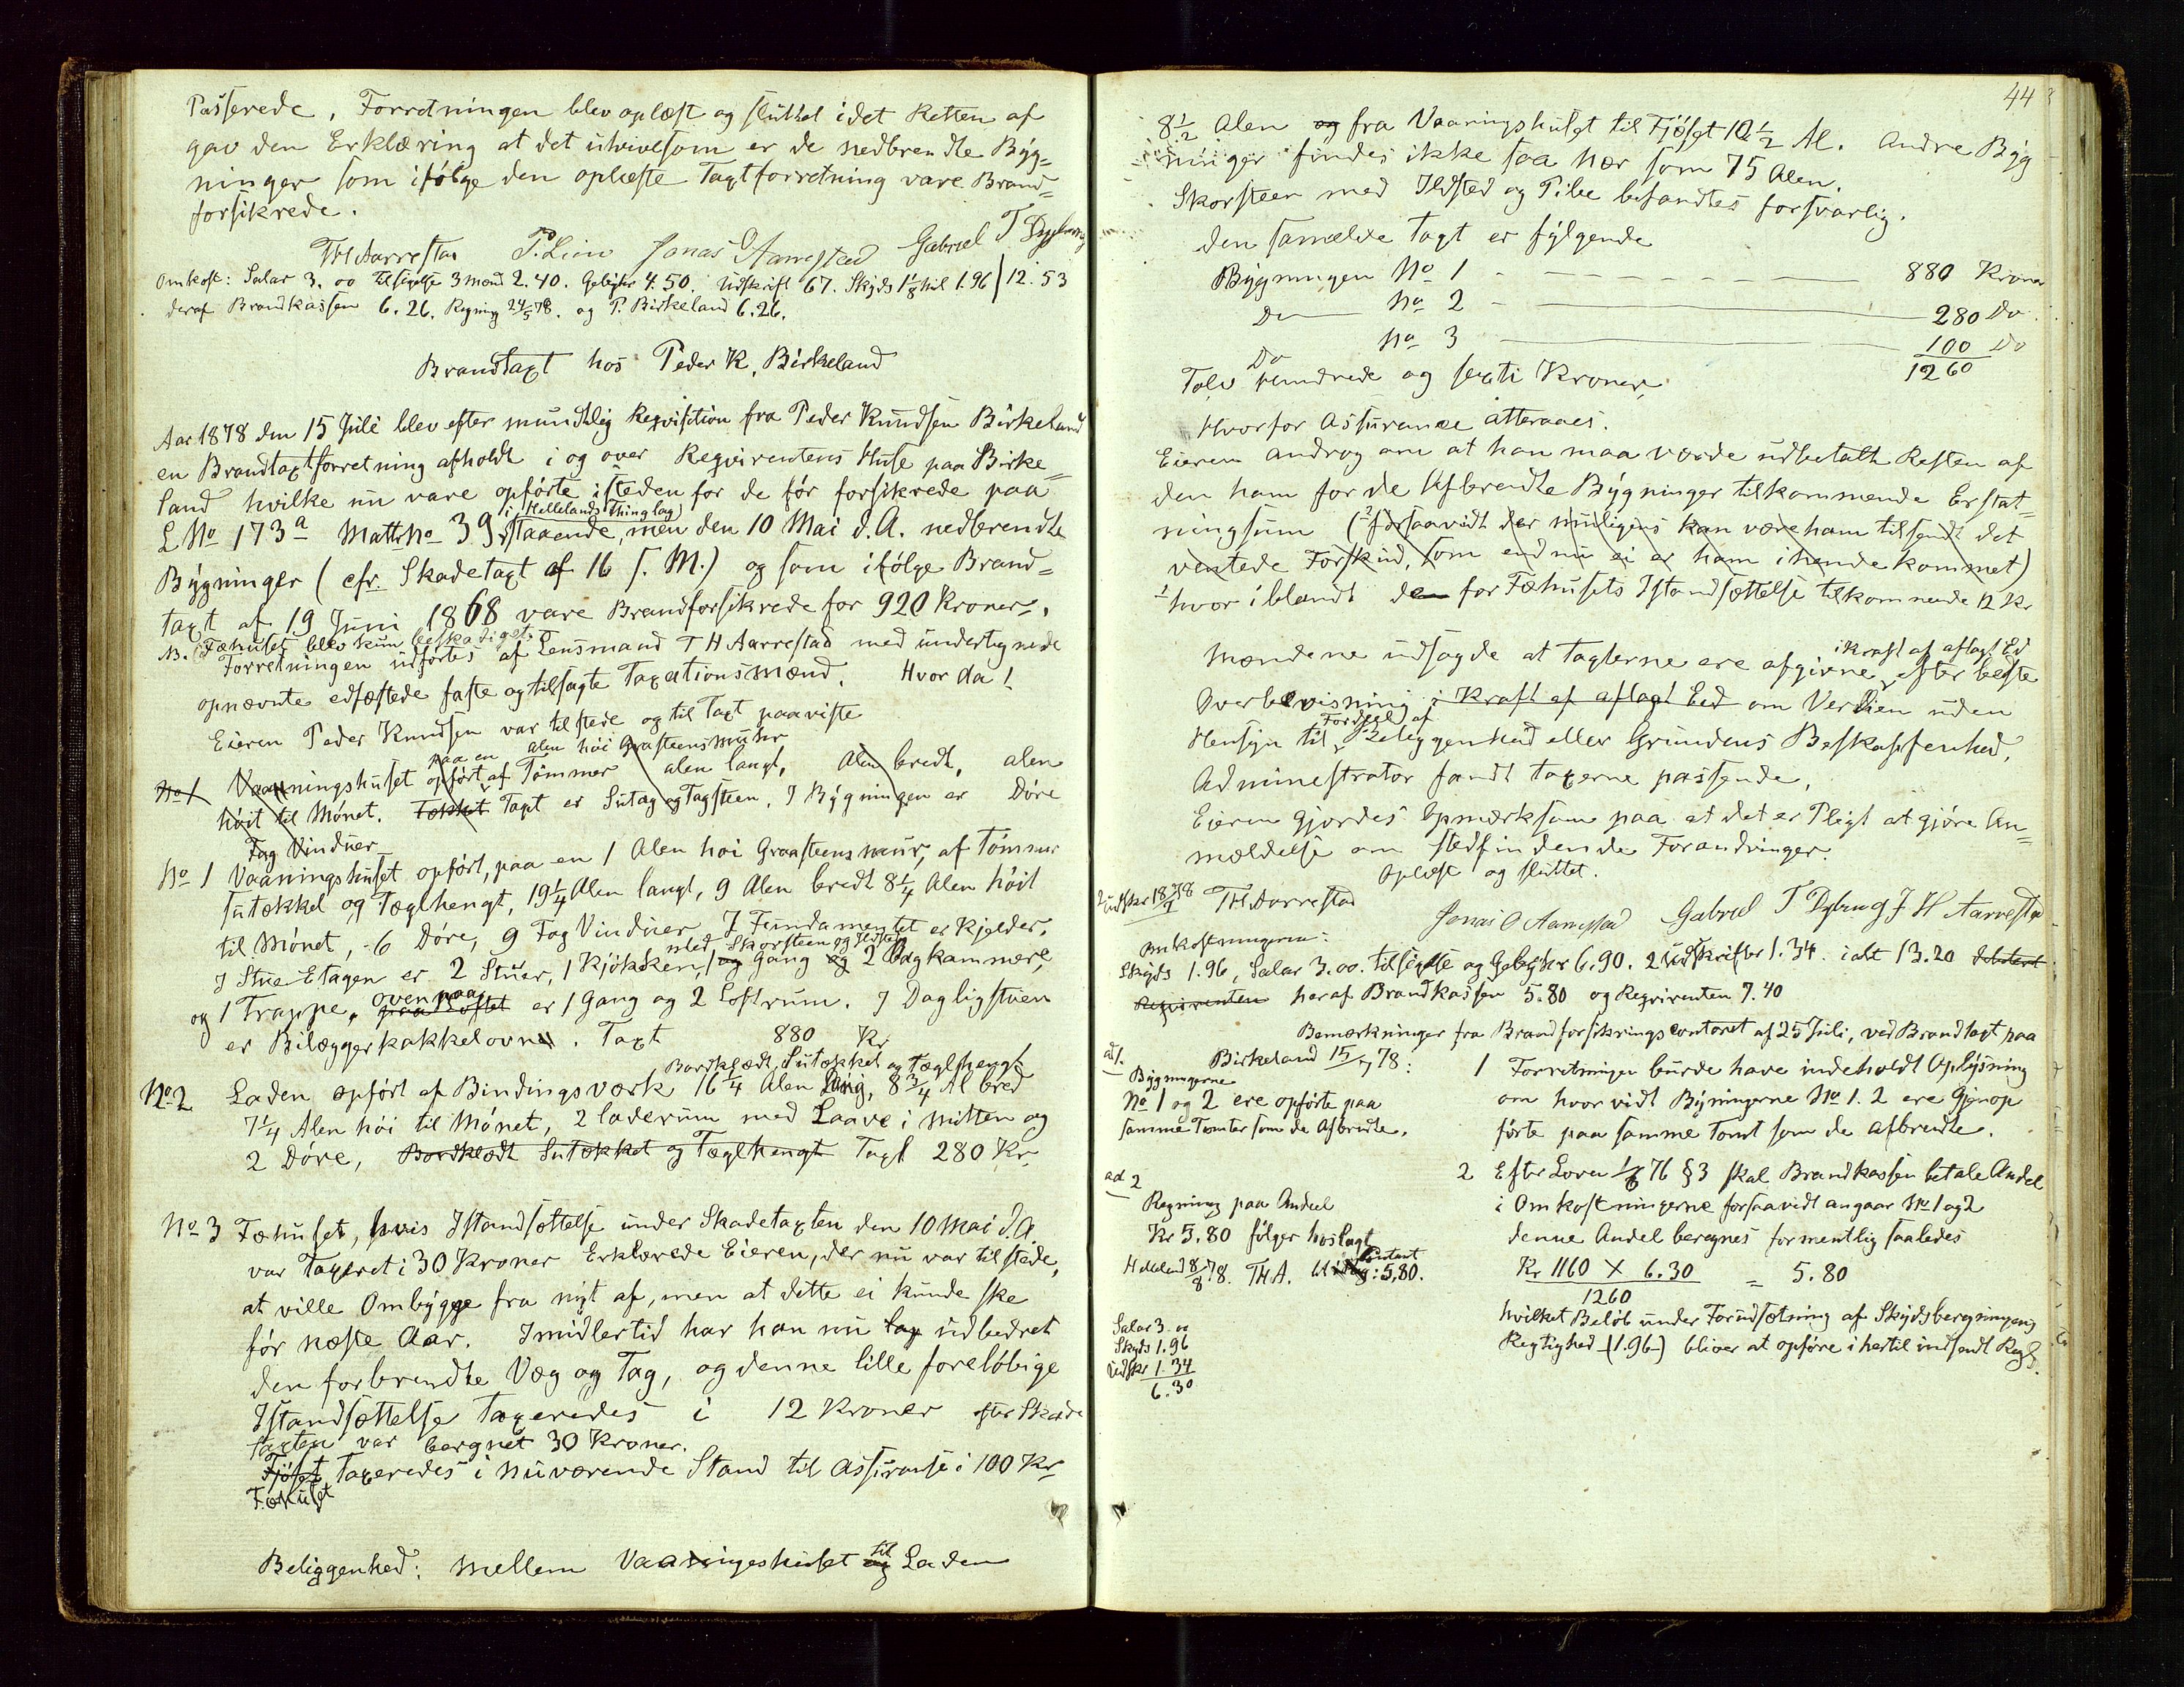 Passerede. Forretningen blev oplæst og sluttet idet Retten af
gav den Erklæring at det utvivlsom er de nedbrendte Byg=
ninger som ifølge den oplæste Taxtforretning vare Brand=
forsikrede.
TH Aarrestad P. Lima Jonas O Aarrestad Gabriel T Dybing
Omkost: Salar 3.00 Tilsigelse 3 mænd 2.40. Gebyhr 4.50. Udskrift 67. Skyds 1 1/8 Mil 1.96 | 12.53
deraf Brandkassen 6.26. Regning 24/5 78. og P. Birkeland 6.26.
Brandtaxt hos Peder K. Birkeland
Aar 1878 den 15 Juli blev efter mundtlig Reqvisition fra Peder Knudsen Birkeland
en Brandtaxtforretning afholdt i og over Reqvirentens Huse paa Birke=
land hvilke nu vare opførte isteden for de før forsikrede paa
i Hellelands Thinglag)
L No 173a Matr No 39 staaende, men den 10 Mai d.A. nedbrendte
Bygninger (cfr. Skadetaxt af 16 s. M.) og som ifølge Brand=
taxt af 19 Juni 1868 vare Brandforsikrede for 920 Kroner.
NB. (Fæhuset blev kun beskadiget.
Forretningen udførtes af Lensmand T H Aarrestad med undertegnede
opnævnte edfæstede faste og tilsagte Taxationsmænd. Hvor da!
Eieren Peder Knudsen var tilstede og til Taxt paaviste
paa en Alen høi Graasteensmuhr
No 1 Vaaningshuset opført af Tømmer alen langt, Alen bredt, alen
høit til Mønet. Tækket Taxt er Sutag og Tagsteen. I Bygningen er Døre
Fag Vinduer
No 1 Vaaningshuset opført, paa en 1 Alen høi Graasteensmur, af Tømmer
sutækket og Tæglhengt, 19 1/4 Alen langt, 9 Alen bredt 8 1/4 Alen høit
til Mønet, 6 Døre, 9 Fag Vinduer I Fundamentet er Kjelder,
med Skorsteen og Ildsted
I Stue Etagen er 2 Stuer, 1 Kjøkken, 1 og Gang og 2 Bagkammere,
ovenpaa
og 1 Trappe. paa Loftet er 1 Gang og 2 Loftrum. I Dagligstuen
er Bilæggerkakkelovn. Taxt 880 Kr
Bordklædt, Sutækket og Tæglhengt
No 2 Laden opført af Bindingsværk 16 1/4 Alen lang, 8 3/4 Al bred
7 1/4 Alen høi til Mønet, 2 laderum med Laave i Mitten og
2 Døre, Bordklædt Sutækket og Tæglhengt Taxt 280 Kr.
No 3 Fæhuset, hvis Istandsættelse under Skadetaxten den 10 Mai d.A.
var Taxeret i 30 Kroner Erklærede Eieren, der nu var tilstede,
at ville Ombygge fra nyt af, men at dette ei kunde ske
før næste Aar. Imidlertid har han nu lap udbedret
den forbrendte Væg og Tag, og denne lille foreløbige
Istandsættelse Taxeredes i 12 Kroner efter Skade
taxten var beregnet 30 Kroner.
Fjøset Taxeredes i nuværende Stand til Assuranse i 100 Kr
Fæhuset
Beliggenhed: Mellem Vaaningeshuset og til Laden
44
8 1/2 Alen og fra Vaaningshuset til Fjøset 10 1/2 Al. Andre Byg
ninger findes ikke saa nær som 75 Alen.
Skorsteen med Ildsted og Pibe befandtes forsvarlig.
den samælde Taxt er følgende
Bygningen No 1 880 Kroner
Do No 2 280 Do
Do No 3 100 Do
1260
Tolv Hundrede og sexti Kroner
Hvorfor Assurance atteraaes.
Eieren androg om at han maa vorde udbetalt Resten af
den ham for de Afbrendte Bygninger tilkommende Erstat=
ningsum (forsaavidt der muligens kan være ham tilsendt det
ventede Forskud, som endnu ei er ham ihende kommet)
hvoriblandt den for Fæhusets Istandsættelse tilkommende 12 Kr
i Kraft af aflagt Ed
Mændene udsagde at Taxterne ere afgivne efter bedste
Overbevisning i Kraft af aflagt Eed om Verdien uden
Fordeel af
Hensyn til Beliggenhed eller Grundens Beskaffenhed.
Administrator fandt Taxerne passende.
Eieren gjordes opmærksom paa at det er Pligt at gjøre An=
mældelse om stedfindende Forandringer.
Oplæst og sluttet.
2 udskr 18/7 78 TH Aarrestad Jonas O Aarrestad Gabriel T Dybing J H Aarrestad
Omkostningerne:
Skyds 1.96, Salar 3.00. tilsigelse og Gebyhr 6.90. 2 Udskrifter 1.34. ialt 13.20 debiteret
Reqvirenten heraf Brandkassen 5.80 og Reqvirenten 7.40
Bemærkninger fra Brandforsikringscontoret af 25 Juli, ved Brandtaxt paa
Birkeland 15/7 78:
ad 1.
Bygningerne
No 1 og 2 ere opførte paa
samme Tomter som de Afbrendte.
1 Forretningen burde have indeholdt Oplysning
om hvorvidt Bygningerne No 1. 2 ere Gjenop
førte paa samme Tomt som de afbrendte.
ad 2
Regning paa Andeel
Kr 5.80 følger hoslagt
Helleland 8/8 78. THA. Contant: 5,80.
2 Efter Loven 76 § 3 skal Brandkassen betale Andel
i Omkostningerne forsaavidt angaar No 1 og 2
denne Andel beregnes formentlig saaledes
Kr 1160 X 6.30 = 5.80
1260
hvilket Beløb under Forudsætning af Skydsberegningens
Rigtighed (1.96) bliver at opføre i hertil indsendt Regn.
Salar 3.00
Skyds 1.96
Udskr 1.34
6.30